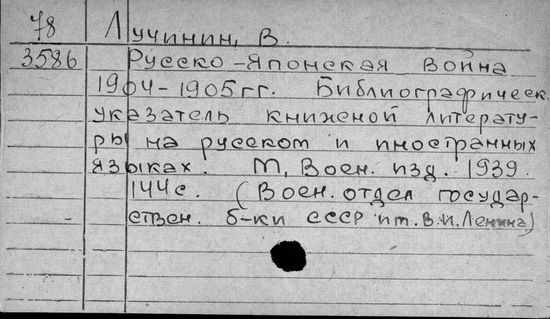 78 Лучинин, В.
3586 Русско-Японская война
1904-1905гг. Библиографическ
указатель книжной литерату-
ры на русском и иностранных
языках. М, Воен. изд. 1939.
144с. (Воен. отдел государ-
ствен. б-ки СССР им. В.И.Ленина)